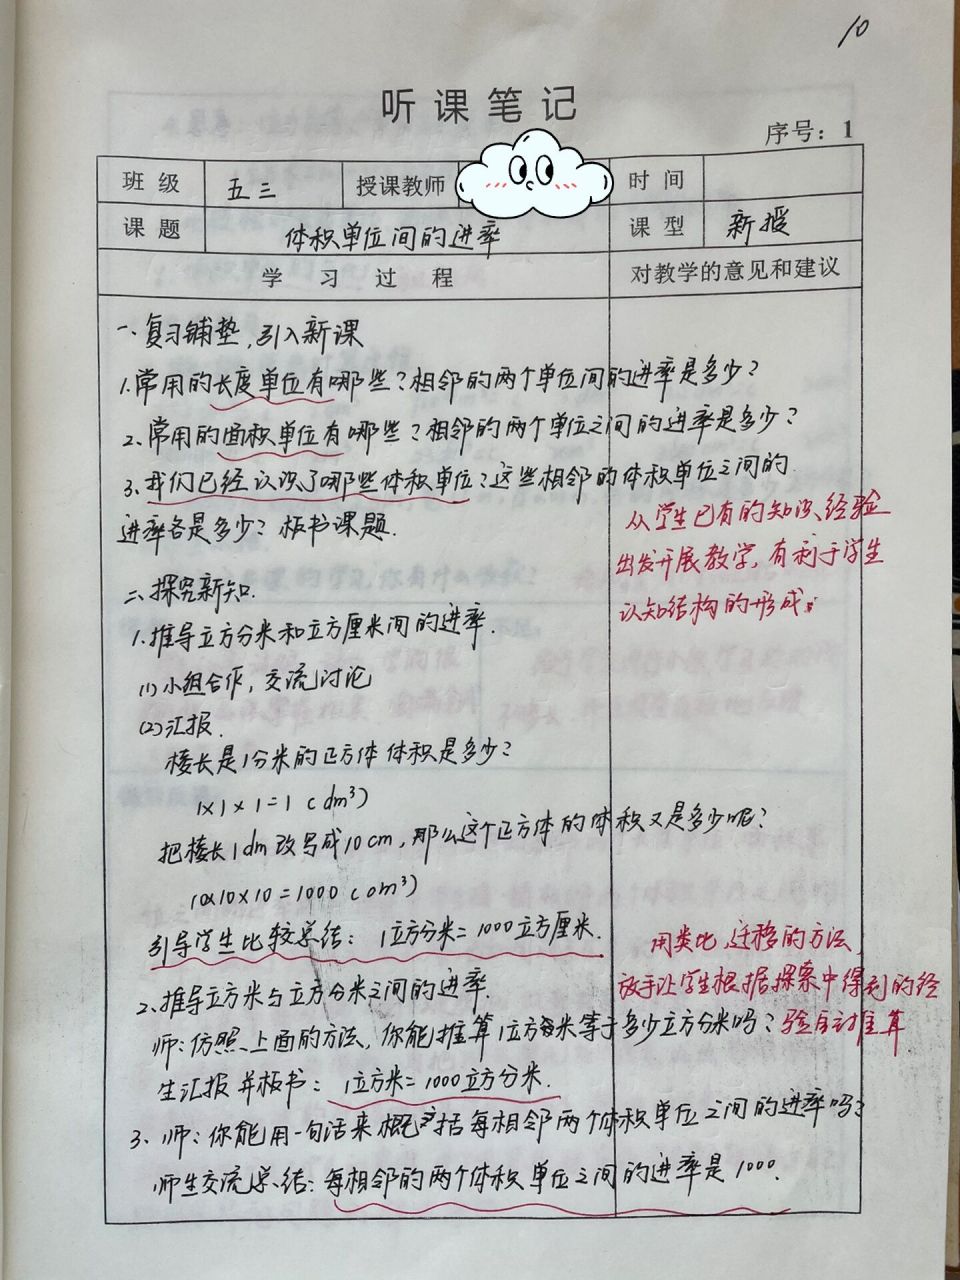 10
听课笔记
序号：1
班级 五三 授课教师 时间
课题 体积单位间的进率 课型 新授
学习过程 对教学的意见和建议
一、复习铺垫，引入新课
1.常用的长度单位有哪些？相邻的两个单位间的进率是多少？
2、常用的面积单位有哪些？相邻的两个单位之间的进率是多少？
3、我们已经认识了哪些体积单位？这些相邻的体积单位之间的
进率各是多少？板书课题.
从学生已有的知识、经验
出发开展教学，有利于学生
认知结构的形成。
二、探究新知.
1.推导立方分米和立方厘米间的进率.
(1)小组合作，交流讨论
(2)汇报.
棱长是1分米的正方体体积是多少？
1×1×1=1（dm³）
把棱长1dm改写成10cm，那么这个正方体的体积又是多少呢？
10×10×10=1000（cm³）
引导学生比较总结：1立方分米=1000立方厘米.
用类比、迁移的方法，
放手让学生根据探索中得到的经
验自动推算
2、推导立方米与立方分米之间的进率.
师：仿照上面的方法，你能推算1立方米等于多少立方分米吗？
生汇报并板书：1立方米=1000立方分米.
3、师：你能用一句话来概括每相邻两个体积单位之间的进率吗？
师生交流总结：每相邻的两个体积单位之间的进率是1000.